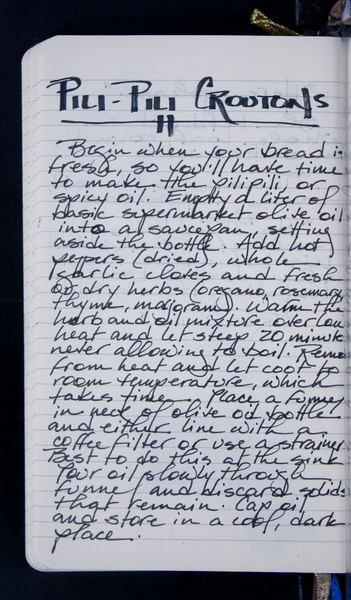 PILI-PILI CROUTONS
II
Begin when your bread is
fresh, so you'll have time
to make the pilipili, or
spicy oil. Empty a liter of
basic supermarket olive oil
into a saucepan, setting
aside the bottle. Add hot
peppers (dried), whole
garlic cloves and fresh
or dry herbs (oregano, rosemary
thyme, marjoram). Warm the
herb and oil mixture over low
heat and let steep 20 minute
never allowing to boil. Remo
from heat and let cool to
room temperature, which
takes time. Place a funnel
in neck of olive oil bottle
and either line with a
coffee filter or use a strainer.
Best to do this at the sink
Pour oil slowly through
funnel and discard solids
that remain. Cap oil
and store in a cool, dark
place.